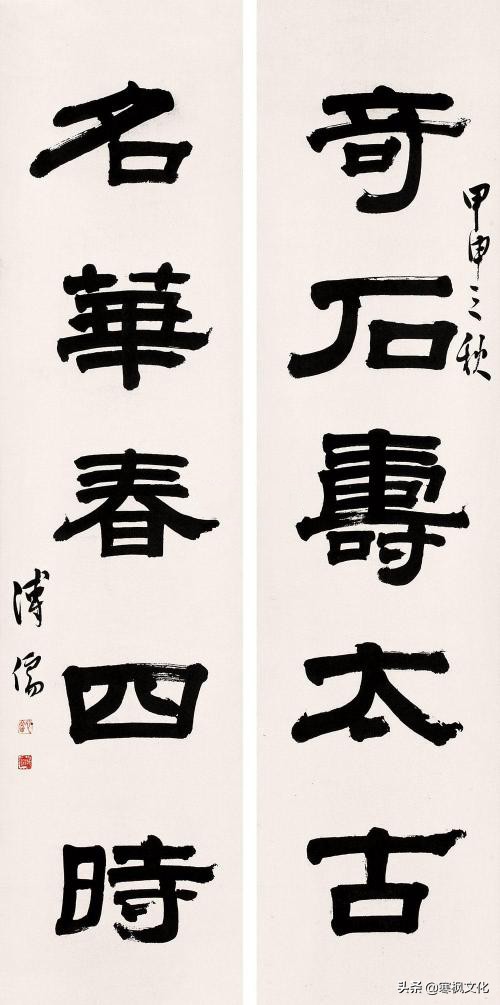 奇石壽太古
甲申三秋
名華春四時
溥儒
头条@寒枫文化